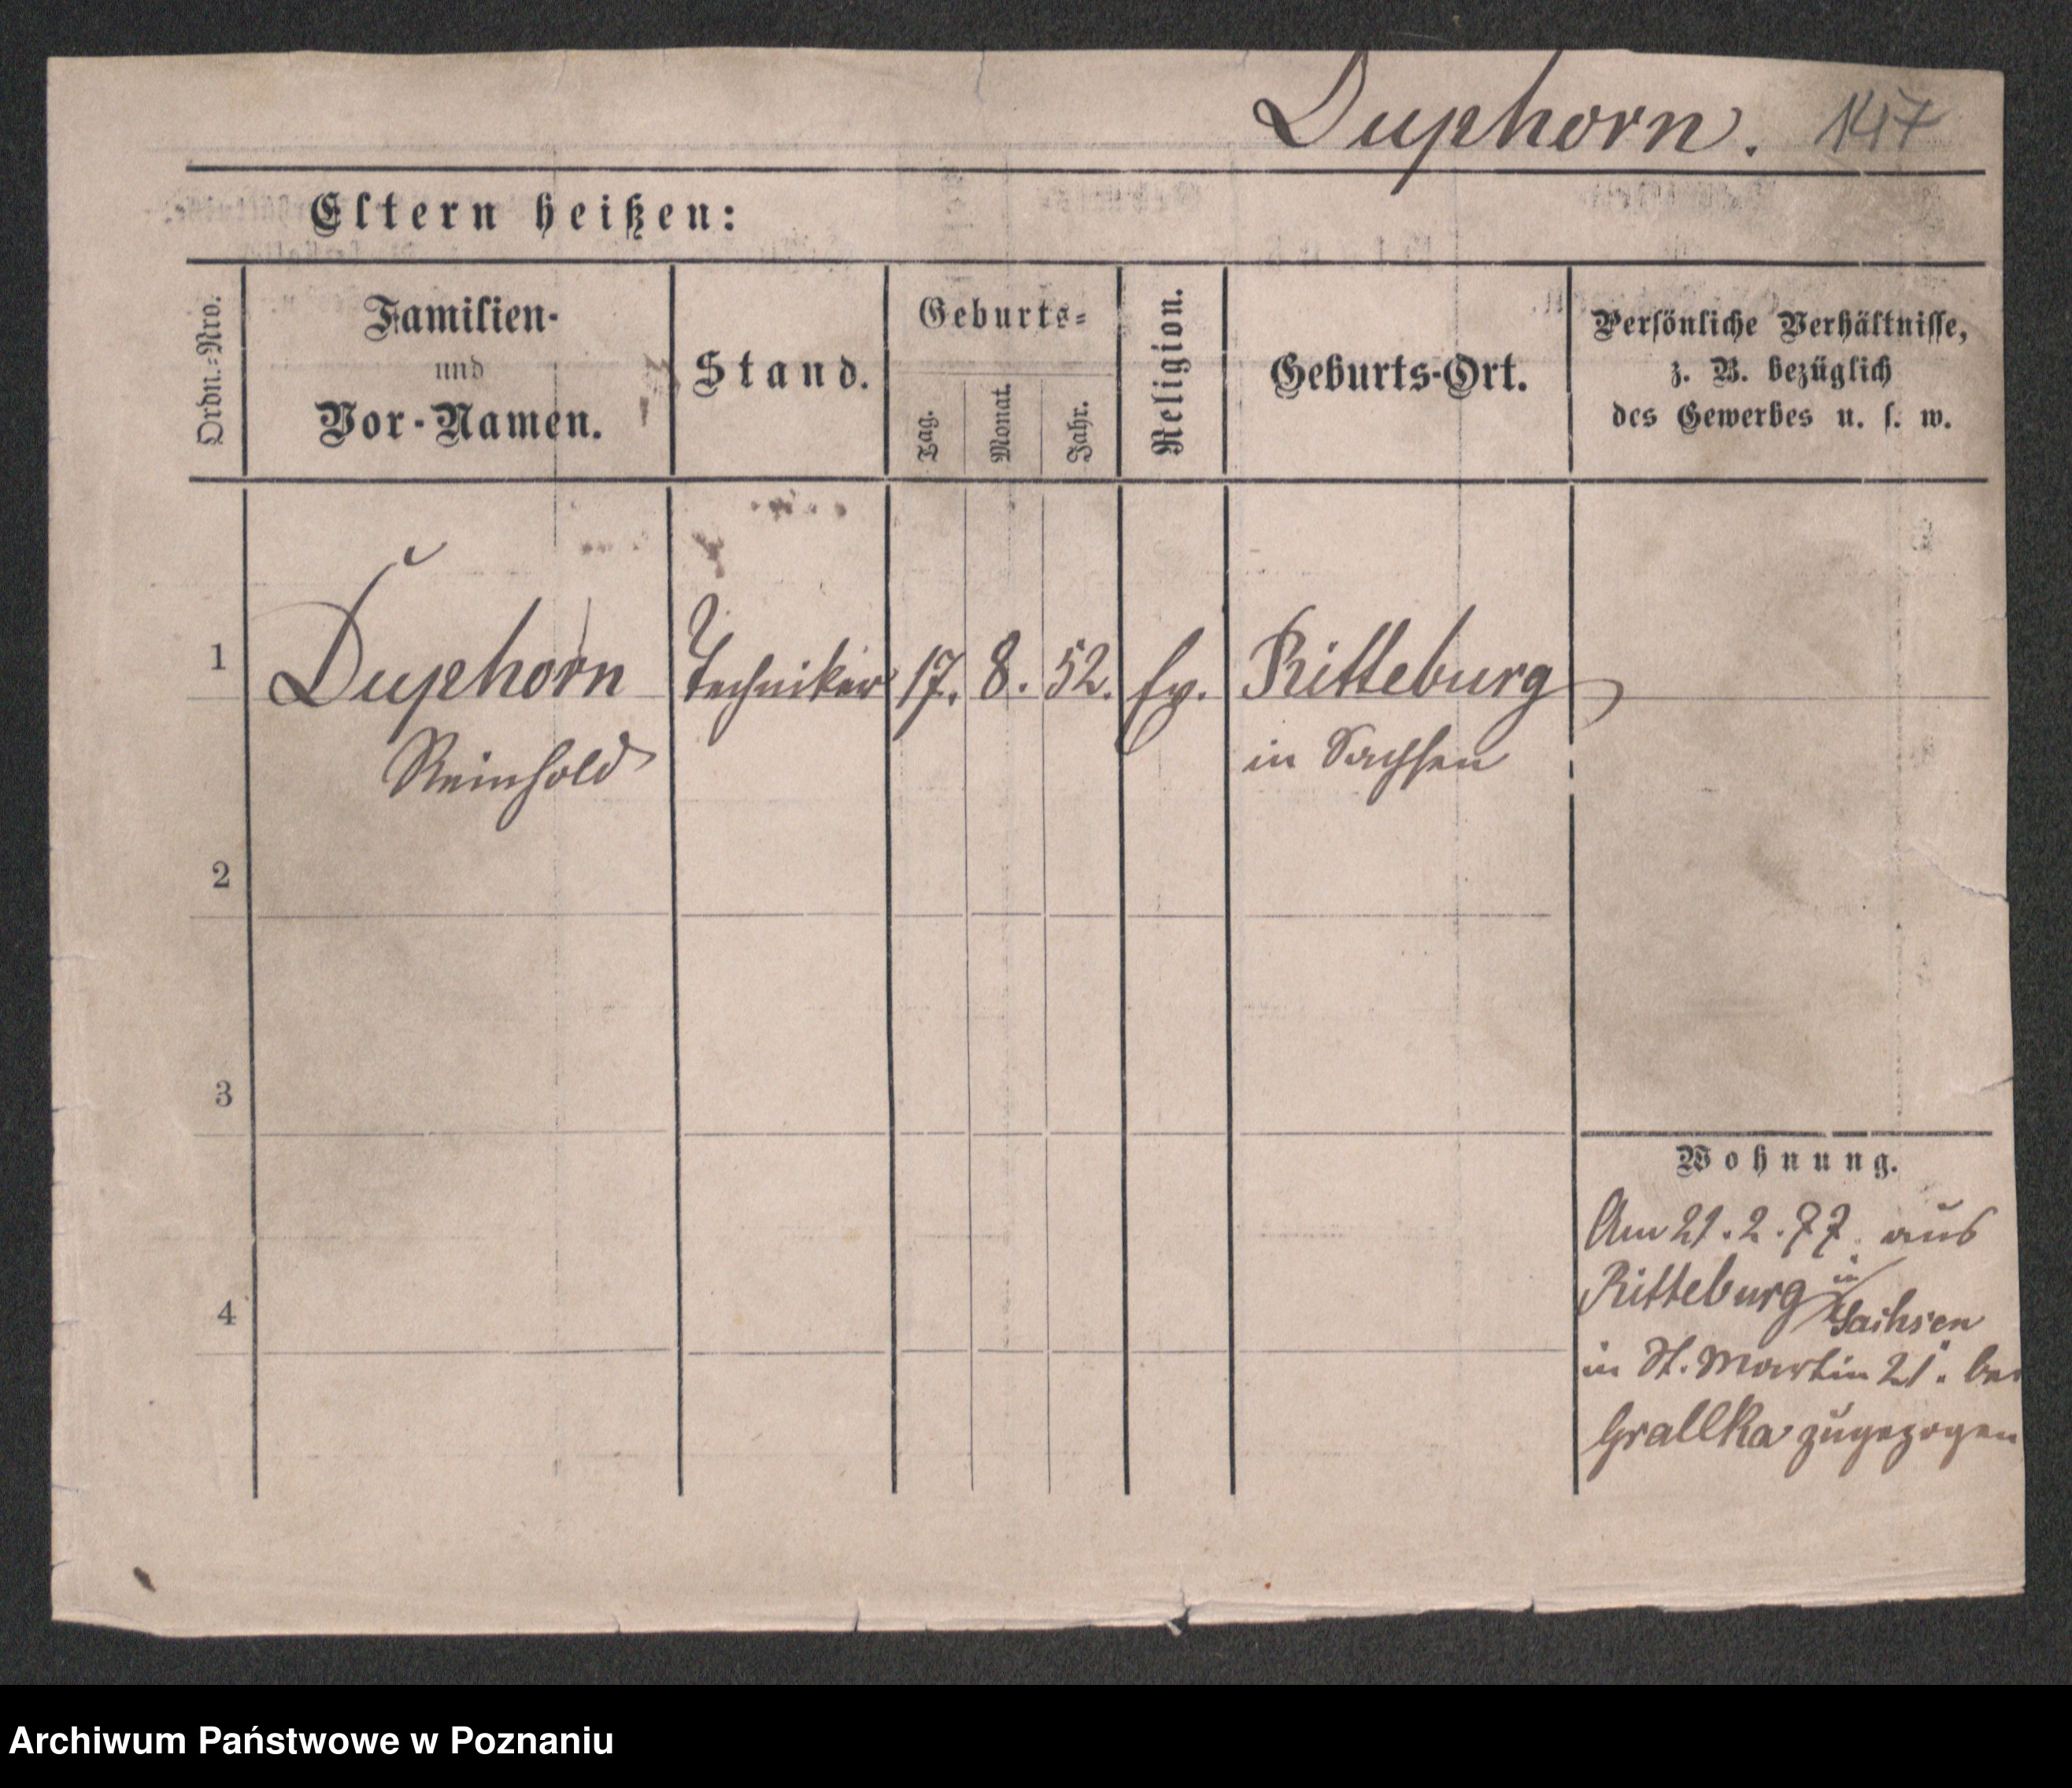 Duphorn. 147
Eltern heißen:
Ordn.=Nro.
Familien-
und
Vor-Namen.
Stand.
Geburts=
Tag.
Monat.
Jahr.
Religion.
Geburts-Ort.
Persönliche Verhältnisse,
z. B. bezüglich
des Gewerbes u. s. w.
1 Duphorn Techniker 17. 8. 52. Ev. Ritteburg
Reinhold in Sachsen
2
3
4
Wohnung.
Am 21. 2. 77. aus
Ritteburg in
Sachsen
in St. Martin 21. bei
Grallka zugezogen
Archiwum Państwowe w Poznaniu